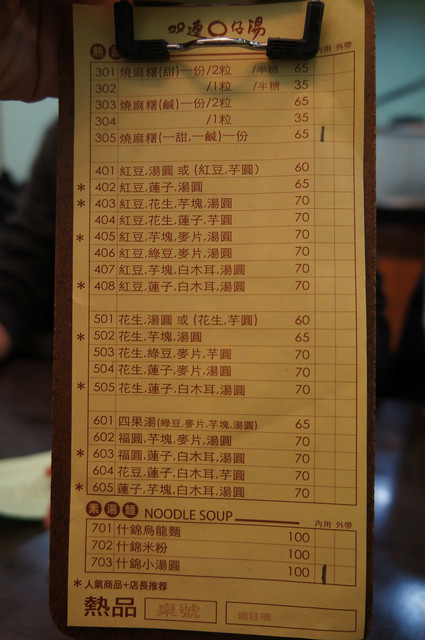 連 仔湯
熱 內用 外帶
301 燒麻糬(甜)一份/2粒 /半糖 65
302 /1粒 /半糖 35
303 燒麻糬(鹹)一份/2粒 65
304 /1粒 35
305 燒麻糬(一甜.一鹹)一份 65
401 紅豆.湯圓 或 (紅豆.芋圓) 60
* 402 紅豆.蓮子.湯圓 65
* 403 紅豆.花生.芋塊.湯圓 70
404 紅豆.花生.蓮子.芋圓 70
* 405 紅豆.芋塊.麥片.湯圓 70
406 紅豆.綠豆.麥片.湯圓 70
407 紅豆.芋塊.白木耳.湯圓 70
* 408 紅豆.蓮子.白木耳.湯圓 70
501 花生.湯圓 或 (花生.芋圓) 60
* 502 花生.芋塊.湯圓 65
503 花生.綠豆.麥片.芋圓 70
504 花生.蓮子.麥片.湯圓 70
* 505 花生.蓮子.白木耳.湯圓 70
601 四果湯(綠豆.麥片.芋塊.湯圓) 65
602 福圓.芋塊.麥片.湯圓 70
* 603 福圓.蓮子.白木耳.湯圓 70
604 花豆.蓮子.白木耳.芋圓 70
* 605 蓮子.芋塊.白木耳.湯圓 70
素湯麵 NOODLE SOUP 內用 外帶
701 什錦烏龍麵 100
702 什錦米粉 100
703 什錦小湯圓 100
* 人氣商品+店長推荐
熱品 桌號 備註欄